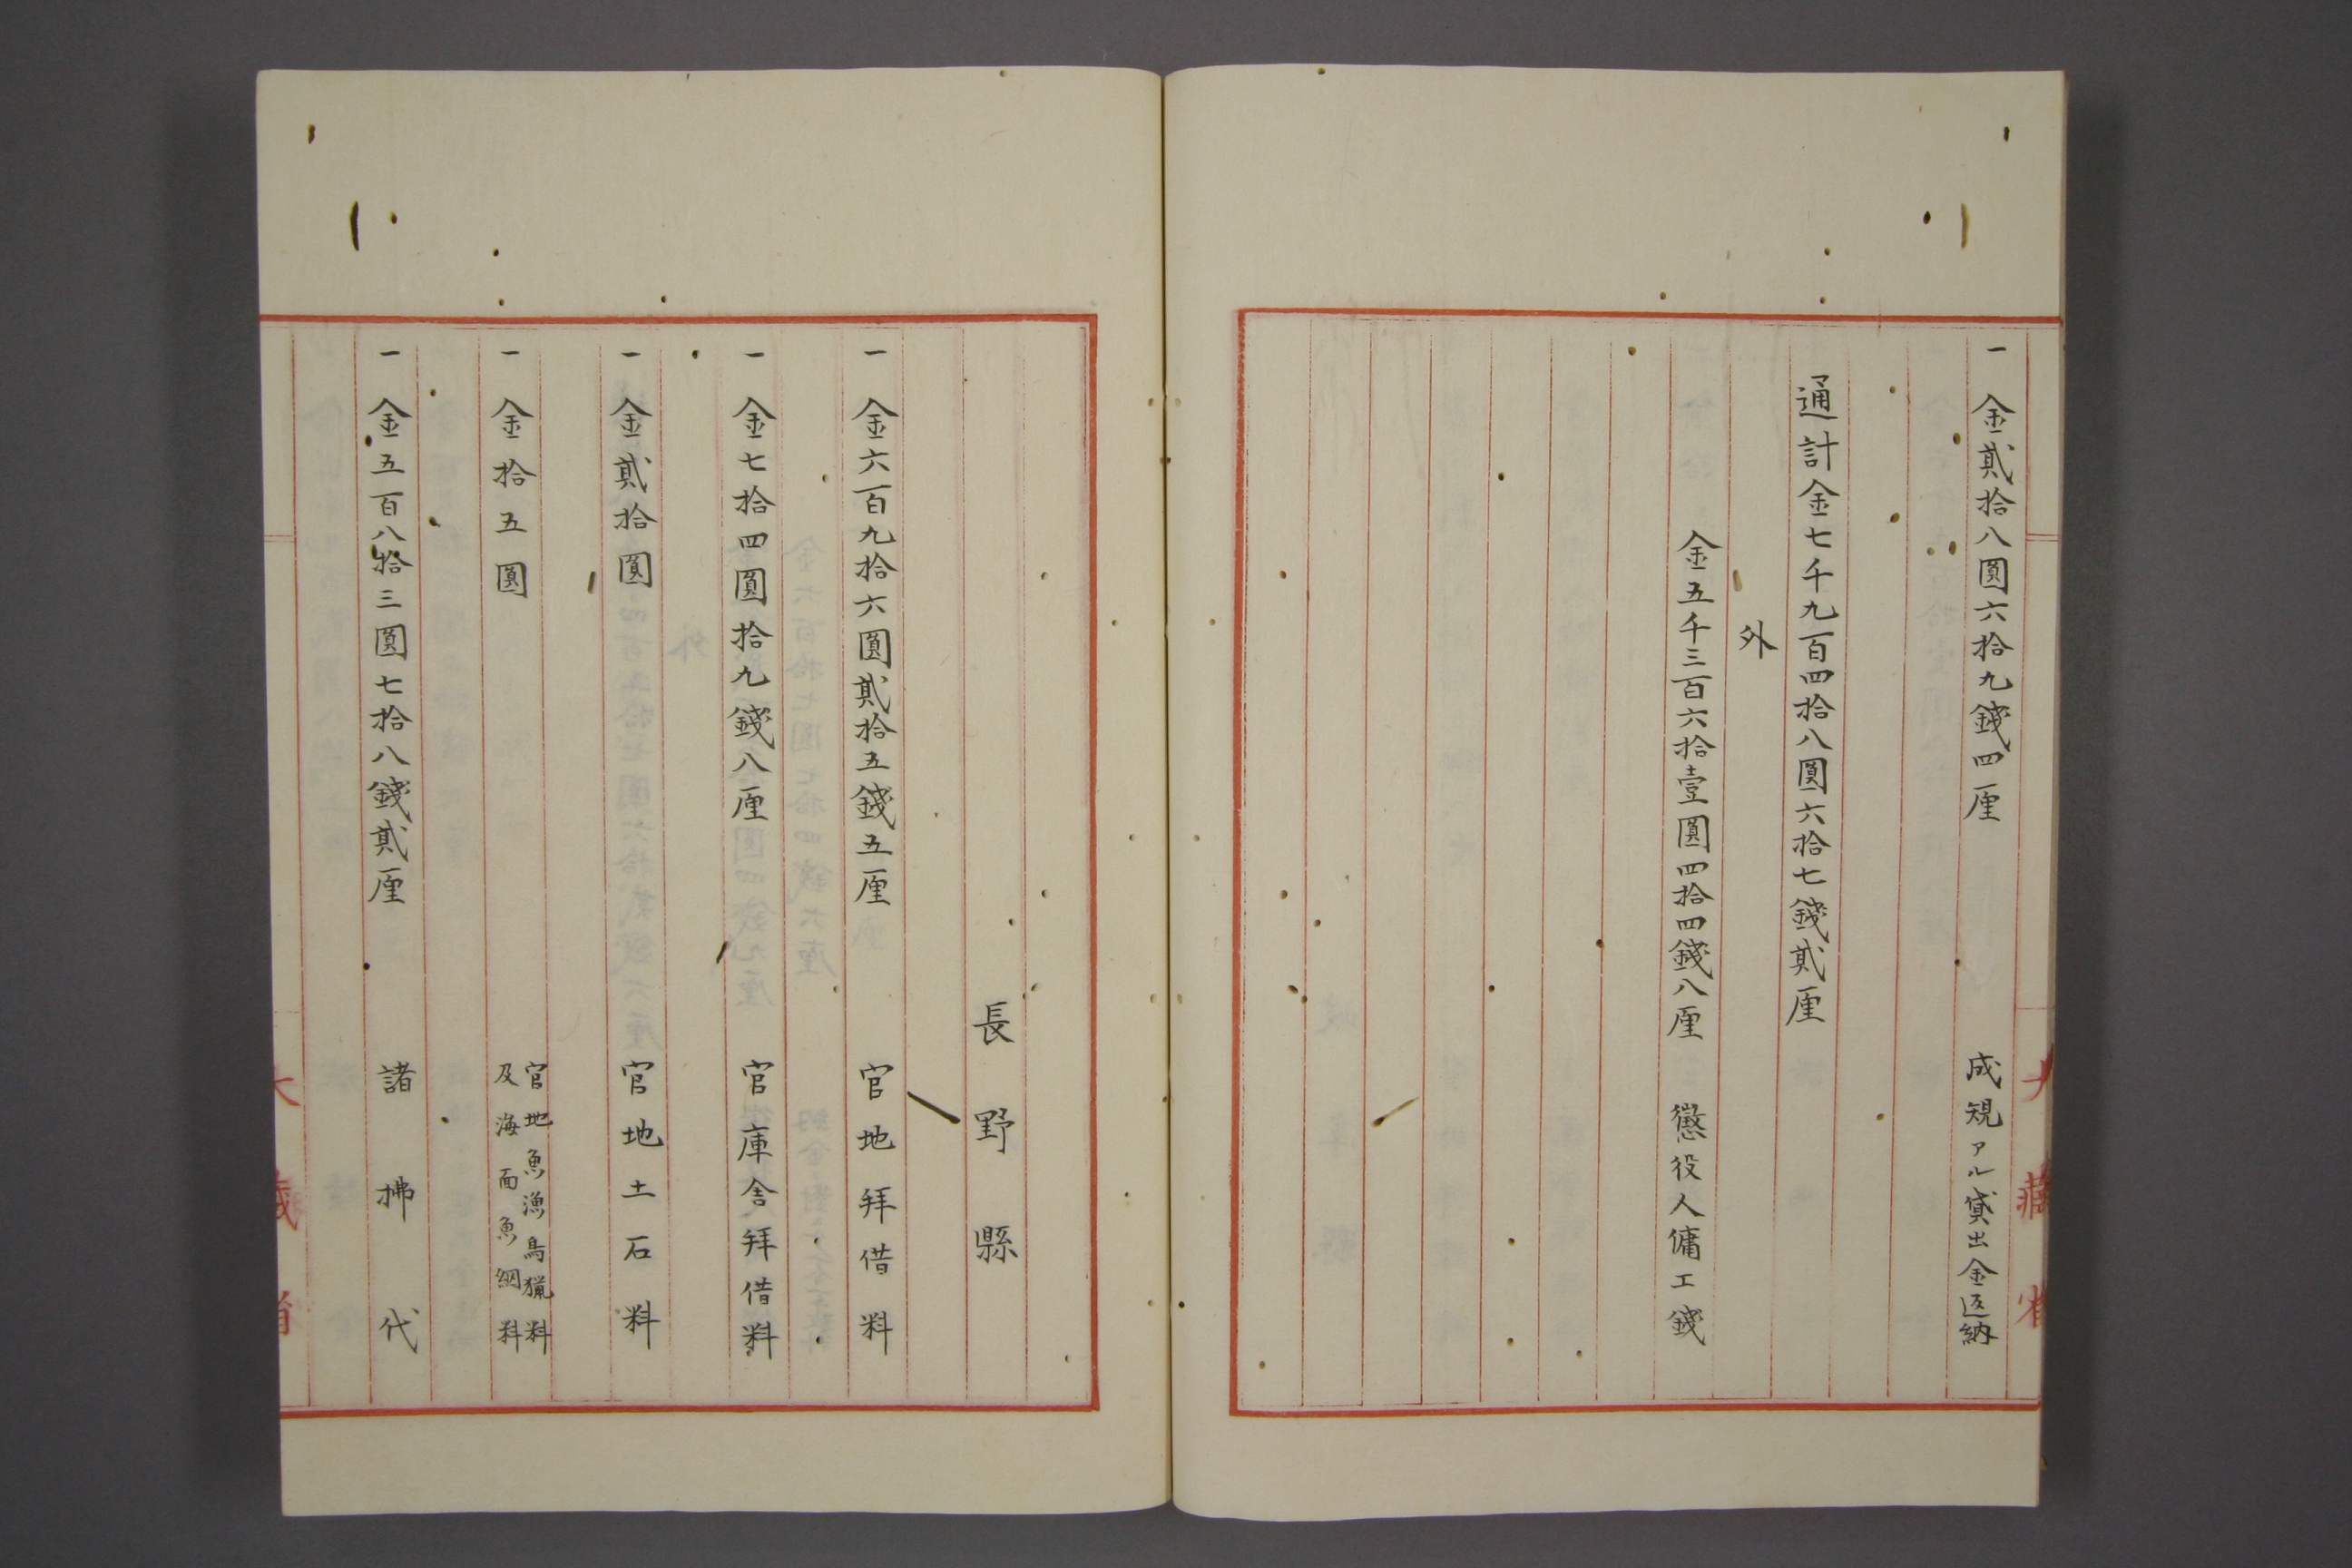 大藏省
一 金貳拾八圓六拾九錢四厘 成規アル貸出金返納
通計金七千九百四拾八圓六拾七錢貳厘
外
金五千三百六拾壹圓四拾四錢八厘 懲役人傭工錢
長野縣
一 金六百九拾六圓貳拾五錢五厘 官地拜借料
一 金七拾四圓拾九錢八厘 官庫舍拜借料
一 金貳拾圓 官地土石料
一 金拾五圓 官地魚漁鳥獵料
及海面魚網料
一 金五百八拾三圓七拾八錢貳厘 諸拂代
大藏省